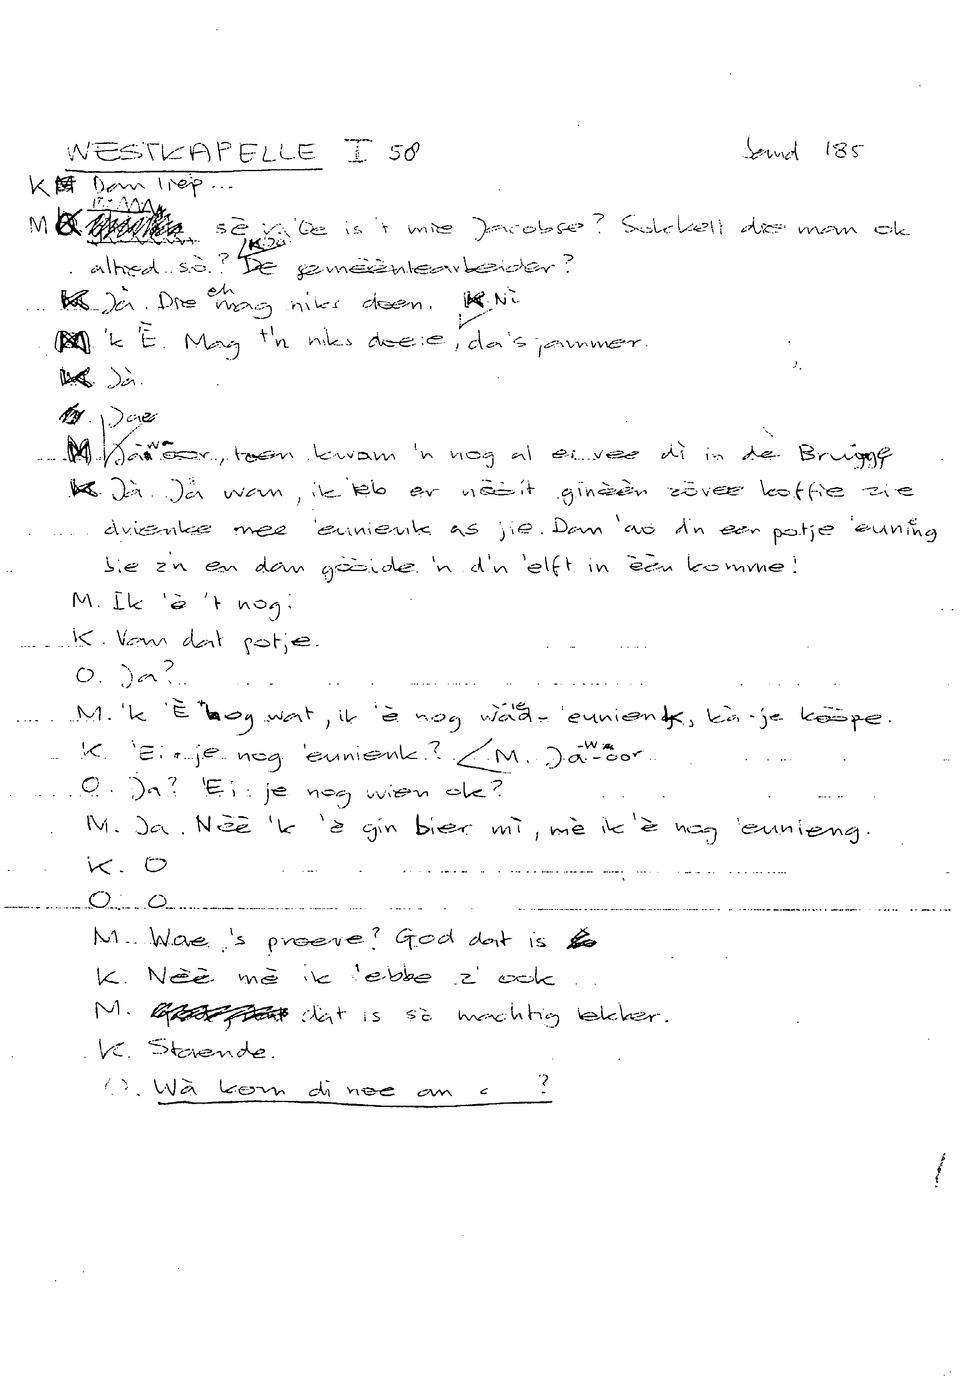 WESTKAPELLE I 50 band 185
K Dan liep...
M sè 'Oe is 't mie Jacobse? Sukkelt die man ok
K. Ja
altied sò? De gemèènteärbeider?
K Jà. Die eh mag niks doen. K. Nì
M 'k 'È. Mag t'n niks doeie, da's jammer.
K Jà.
. Jae
M Jà-wa-oor, toen kwam 'n nog al ei vee dì in de Brugge
K. Jà. Jà wan, ik 'eb er nööit ginèèn zövee koffie zie
drienke mee 'eunienk as jie. Dan 'ao d'n een potje 'euning
bie z'n en dan gööide 'n d'n 'elft in èèn komme!
M. Ik 'è 't nog.
K. Van dat potje.
O. Ja?
M. 'k 'È nog wat, ik 'è nog 'eunienk, kà-je kööpe.
K. 'Ei-je nog 'eunienk? M. Jà-wa-oor
O. Ja? 'Ei-je nog wien ok?
M. Ja. Nèè 'k 'è gin bier mì, mè ik 'è nog 'eunieng.
K. O
O. O
M. Wae 's proeve? God dat is
K. Nèè mè ik 'ebbe z' ook
M. dat is sò machtig lekker.
K. Staende.
O. Wà kom di noe an ?